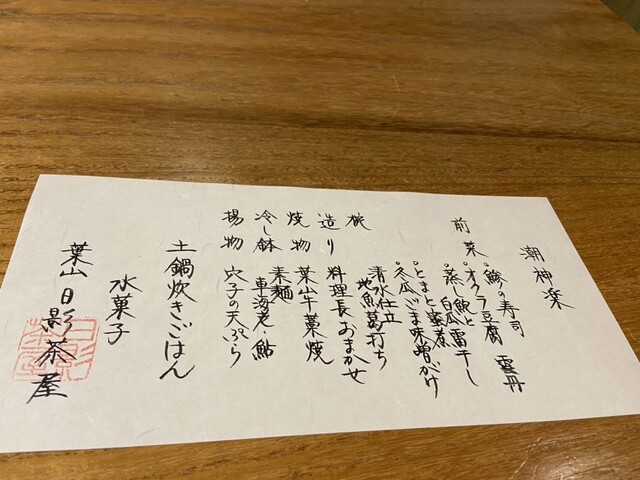 潮神楽
前菜
・鯵の寿司
・オクラ豆腐 雲丹
・蒸し鮑と白瓜雷干し
・とまと蜜煮
・冬瓜ごま味噌がけ
椀
清水仕立
地魚葛打ち
造り 料理長おまかせ
焼物 葉山牛藁焼
冷し鉢 素麺
車海老・鮎
揚物 穴子の天ぷら
土鍋炊きごはん
水菓子
葉山 日影茶屋